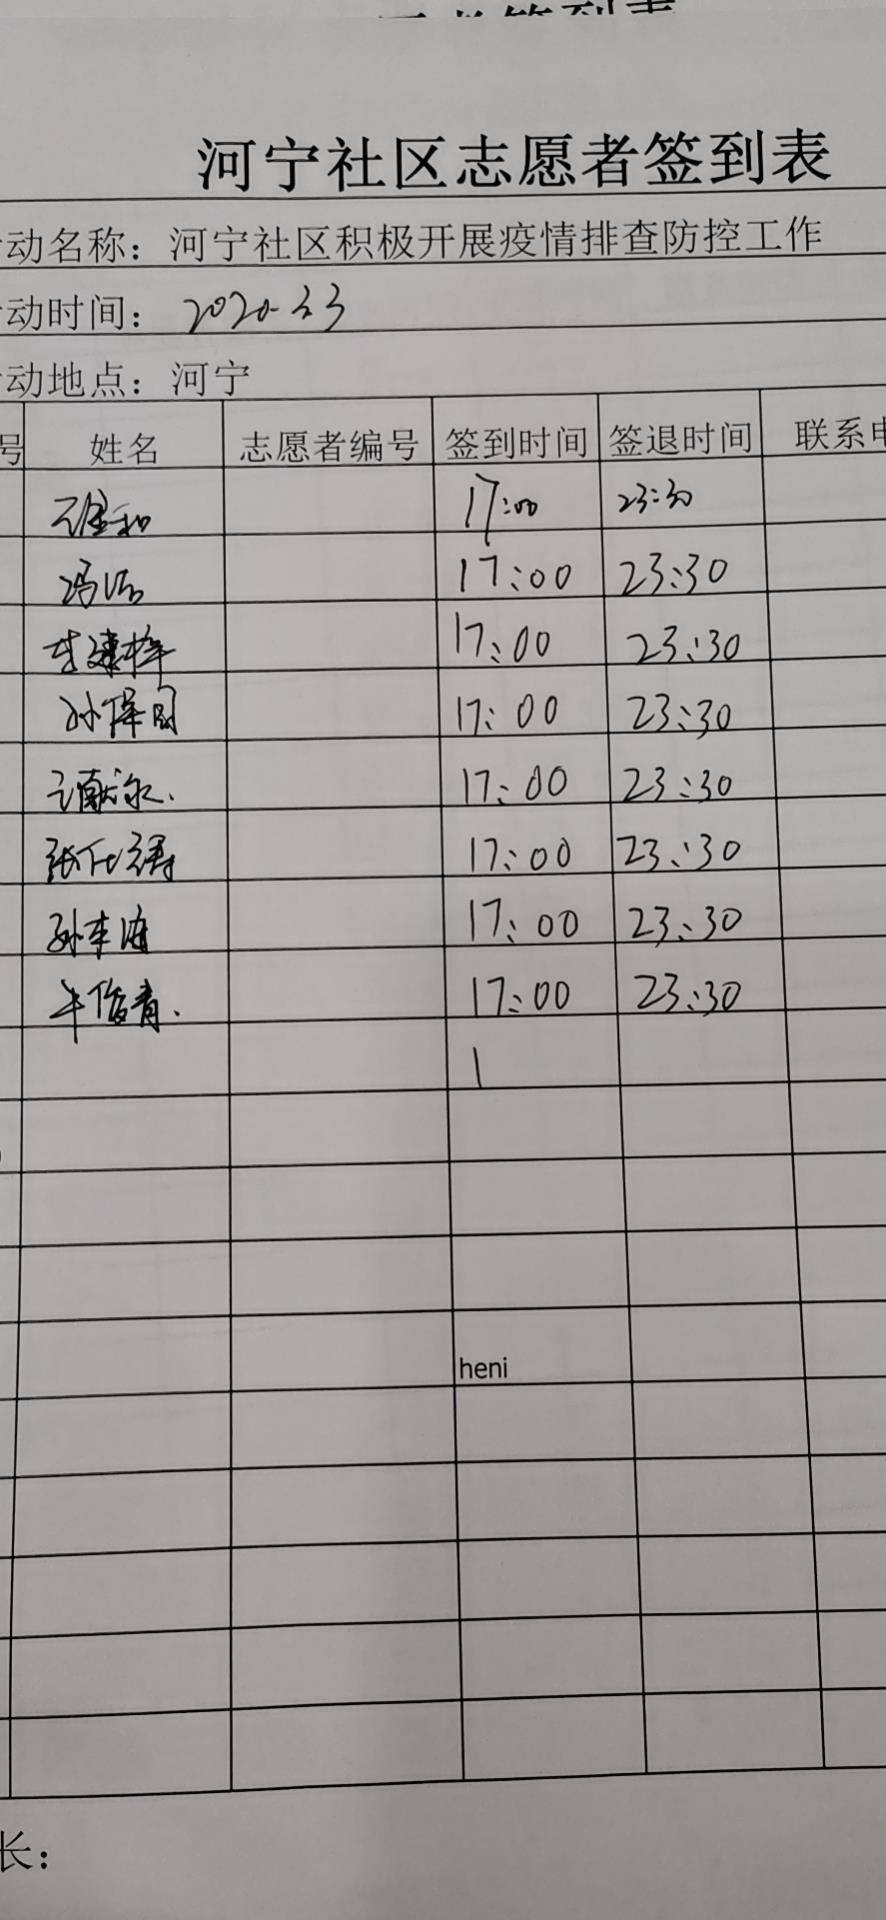 河宁社区志愿者签到表
动名称：河宁社区积极开展疫情排查防控工作
动时间：2020.3.3
动地点：河宁
号 姓名 志愿者编号 签到时间 签退时间 联系电
17:00 23:30
冯浩 17:00 23:30
17:00 23:30
孙泽国 17:00 23:30
17:00 23:30
张仕涛 17:00 23:30
孙幸涛 17:00 23:30
牛俊青. 17:00 23:30
1
heni
长：